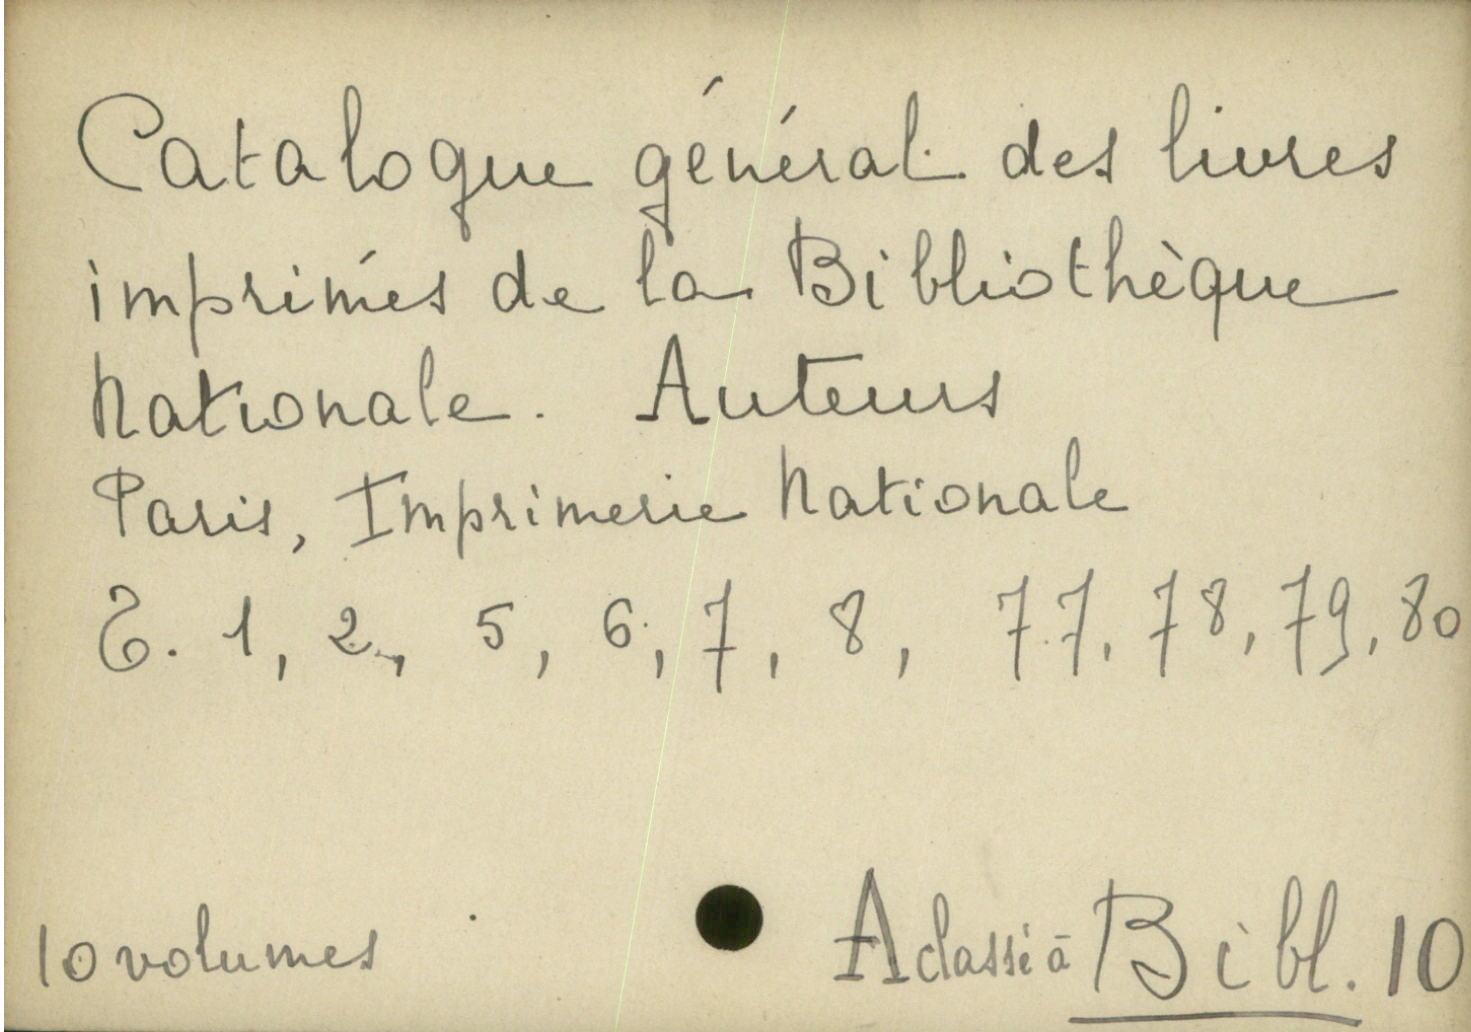 Catalogue général des livres
imprimés de la Bibliothèque
Nationale. Auteurs
Paris, Imprimerie Nationale
T. 1, 2, 5, 6, 7, 8, 77, 78, 79, 80
10 volumes
A classé à Bibl. 10